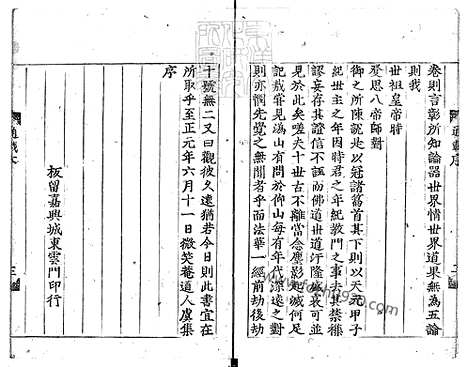 卷則言彰所知論器世界情世界道果無為五論
則我
世祖皇帝時
發思八帝師對
御之所陳說此以冠諸篇首其下則以天元甲子
紀世主之年因時君之年紀教門之事去其繁雜
謬妄存其證信不誣而佛道世道汙隆盛衰可並
見於此矣嗟夫十世古今不離當念塵影起滅何足
記哉嘗見溈山有問於仰山每有年代深遠之對
則亦惘先覺之無聞者乎而法華一經前劫後劫
十號無二又曰觀彼久遠猶若今日則此書宜在
所取乎至正元年六月十一日微笑菴道人虞集
序
板留嘉興城東雲門印行
通載序
二
通載大
三